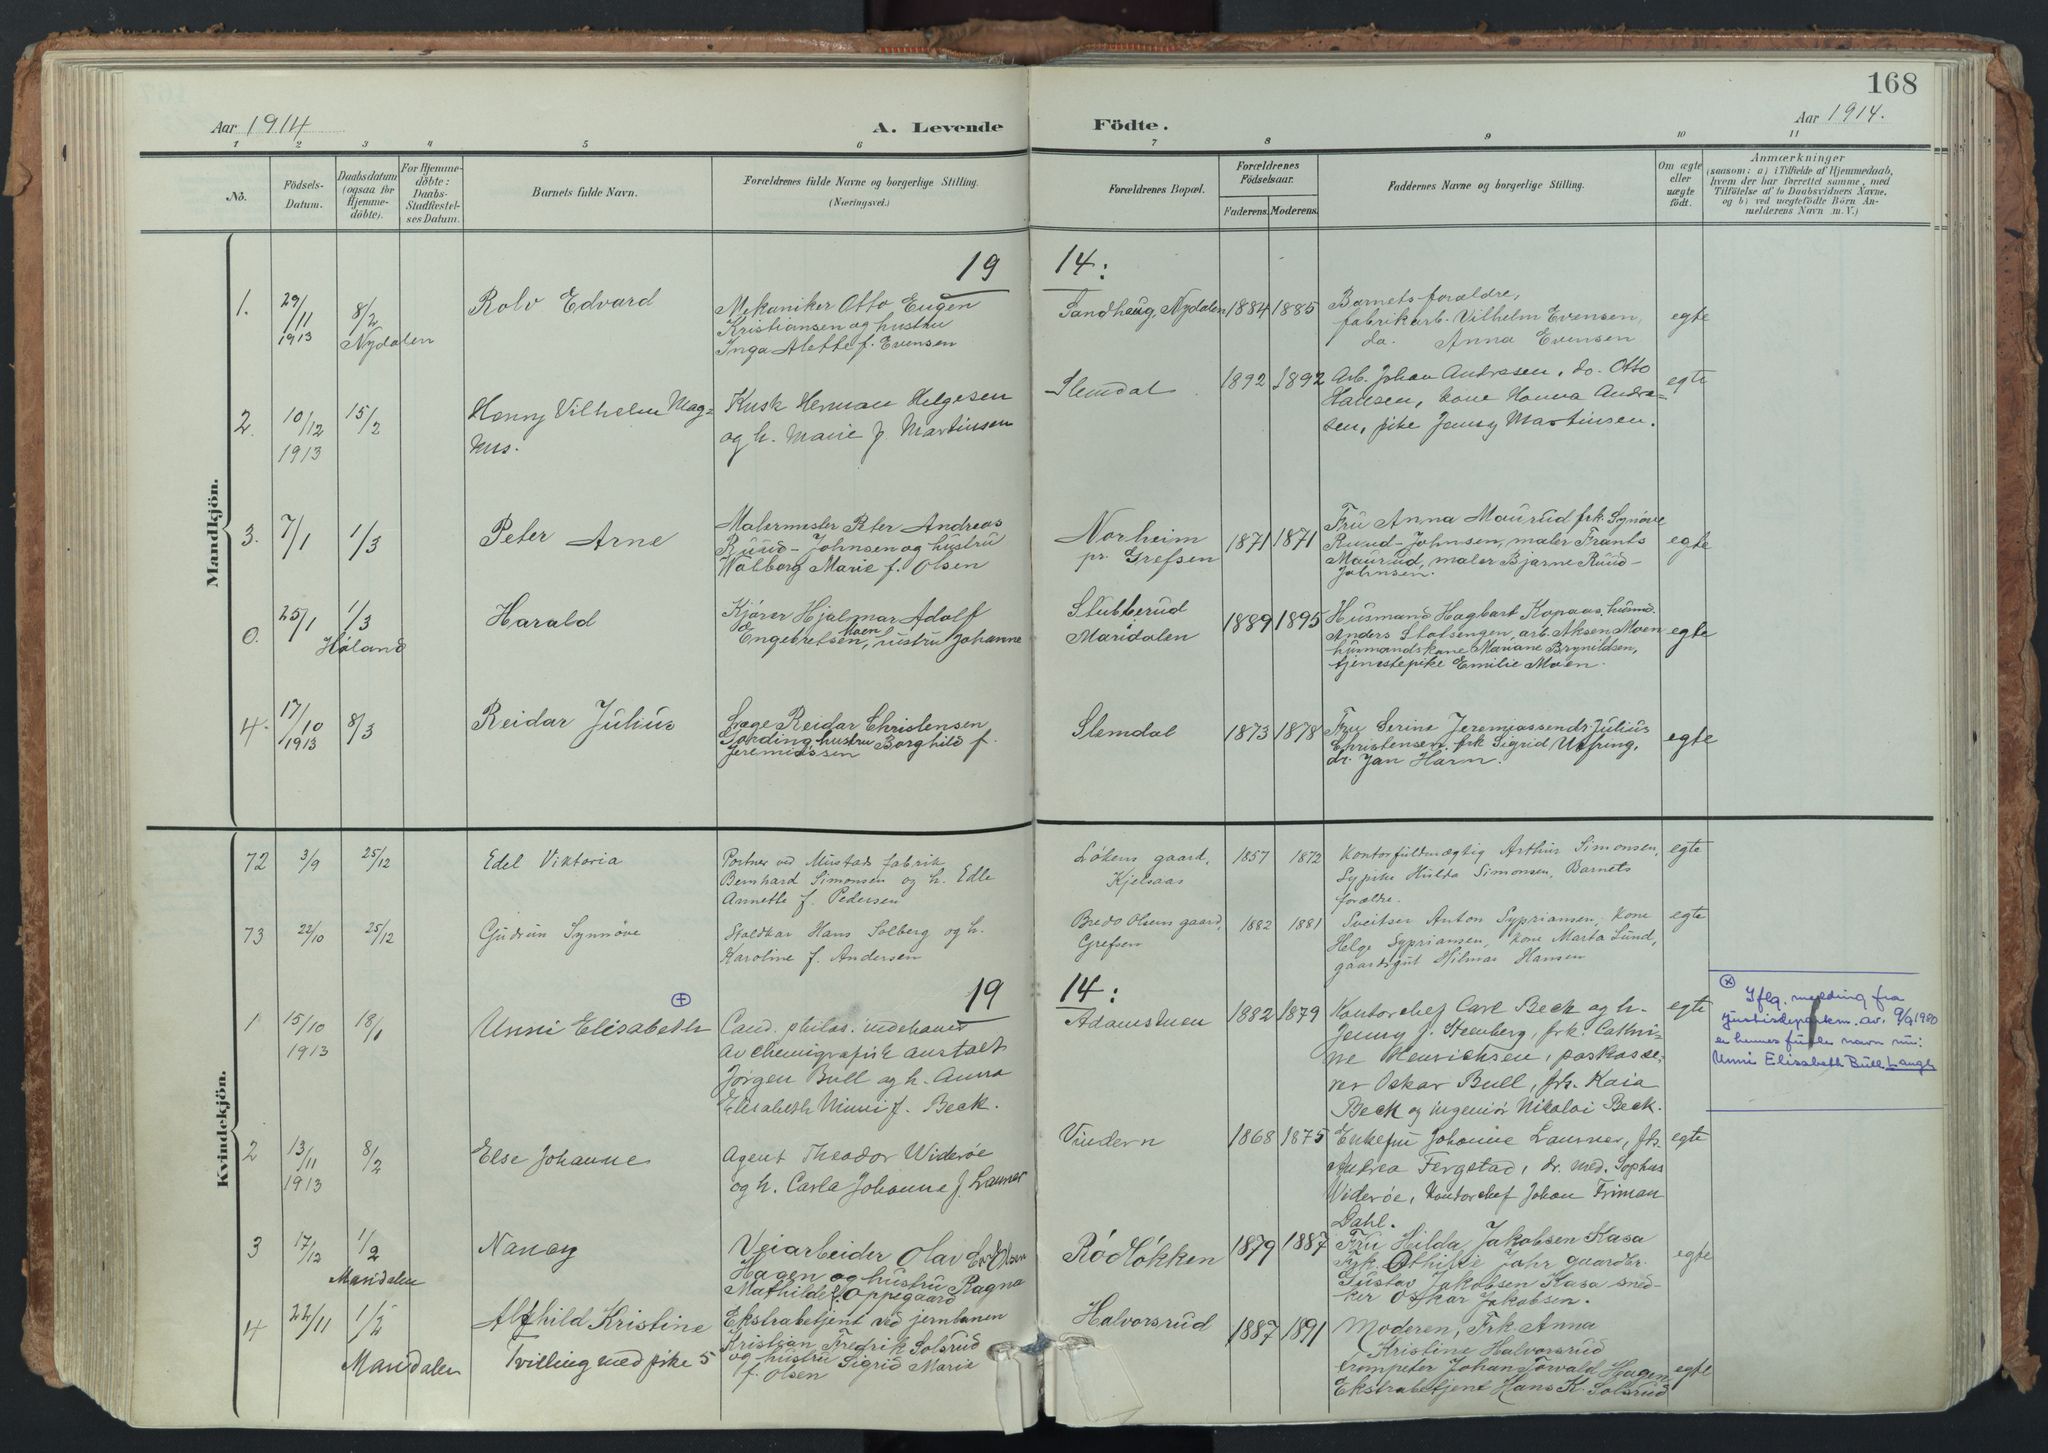 168
Aar 1914
A. Levende
Födte.
Aar 1914.
1 2 3 4 5 6 7 8 9 10 11
No.
Födsels-
Datum.
Daabsdatum
(ogsaa for
Hjemme-
döbte).
For Hjemme-
döbte:
Daabs-
Stadfæstel-
ses Datum.
Barnets fulde Navn.
Forældrenes fulde Navne og borgerlige Stilling.
(Næringsvei.)
Forældrenes Bopæl.
Forældrenes
Födselsaar.
Faderens. Moderens.
Faddernes Navne og borgerlige Stilling.
Om ægte
eller
uægte
födt.
Anmærkninger
(saasom: a) i Tilfælde af Hjemmedaab,
hvem der har forrettet samme, med
Tilföielse af to Daabsvidners Navne,
og b) ved uægtefödte Börn An-
melderens Navn m. V.)
Mandkjön.
19
14:
1.
29/11
1913
8/2
Nydalen
Rolv Edvard
Mekaniker Otto Eugen
Kristiansen og hustru
Inga Alette f. Evensen
Sandhaug, Nydalen
1884 1885
Barnets forældre,
fabrikarb. Vilhelm Evensen,
do. Anna Evensen
egte
2.
10/12
1913
15/2
Henry Vilhelm Mag-
nus.
Kusk Herman Helgesen
og h. Marie f. Martinsen
Slemdal
1892 1892
Arb. Johan Andresen, do. Otto
Hansen, kone Hanna Andre-
sen, pike Jenny Martinsen.
egte
3.
7/1
1/3
Peter Arne
Malermester Peter Andreas
Ruud-Johnsen og hustru
Walborg Marie f. Olsen
Norheim
pr. Grefsen
1871 1871
Fru Anna Maurud frk. Synöve
Ruud-Johnsen, maler Frants
Maurud, maler Bjarne Ruud-
Johnsen.
egte
0.
25/1
1/3
Höland
Harald
Kjörer Hjalmar Adolf
Engebretsen Moen, hustru Johanne
Stubberud
Maridalen
1889 1895
Husmand Hagbart Kopaas, husmd.
Anders Stolsengen, arb. Aksen Moen
husmandskone Mariane Brynildsen,
tjenestepike Emilie Moen.
egte
4.
17/10
1913
8/3
Reidar Julius
Læge Reidar Christensen
Gording, hustru Borghild f.
Jeremiassen
Slemdal
1873 1878
Fru Serine Jeremiassen dr. Julius
Christensen, frk Sigrid
dr. Jan Harm.
egte
Kvindekjön.
72
3/9
25/12
Edel Viktoria
Portner ved Mustads fabrik
Bernhard Simonsen og h. Edle
Annette f. Pedersen
Lökens gaard,
Kjelsaas
1857 1872
Kontorfuldmægtig Arthur Simonsen,
Sypike Hulda Simonsen, Barnets
forældre.
egte
73
22/10
25/12
Gudrun Synnöve
Staldkar Hans Solberg og h.
Karoline f. Andersen
Bredo Olsens gaard,
Grefsen
1882 1881
Sveitser Anton Sypriansen, kone
Helge Sypriansen, kone Marta Lund,
gaardsgut Hilmar Hansen
egte
19
14:
1
15/10
1913
18/1
Unni Elisabeth
Cand. philos. indehaver
av chemigrafisk anstalt
Jörgen Bull og h. Anna
Elisabeth Ninni f. Beck.
Adamstuen
1882 1879
Kontorchef Carl Beck og h.
Jenny f. Steenberg, frk. Cathri-
ne Henrichsen, paskasse-
rer Oskar Bull, frk. Kaia
Beck og ingeniör Nikolai Beck.
egte
Iflg. melding fra
justisdepartem. av 9/9 1980
er hennes fulle navn nu:
Unni Elisabeth Bull Lange
2
13/11
1913
8/2
Else Johanne
Agent Theodor Wideröe
og h. Carla Johanne f. Launer
Vindern
1868 1875
Enkefru Johanne Launer, frk.
Andrea Fergstad, dr. med. Sophus
Wideröe, Kontorchef Johan Friman
Dahl.
egte
3
17/12
1/2
Maridalen
Nancy
Veiarbeider Olav
Hagen og hustru Ragna
Mathilde f. Oppegaard
Rödlökken
1879 1887
Fru Hilda Jakobsen Kasa
Frk. Othilie Jahr gaardbr.
Gustav Jakobsen Kasa sned-
ker Oskar Jakobsen.
egte
4
22/11
1/2
Maridalen
Alfhild Kristine
Tvilling med pike 5
Ekstrabetjent ved jernbanen
Kristian Fredrik Solsrud
og hustru Sigrid Marie
f. Olsen
Halvorsrud
1887 1891
Moderen, Frk. Anna
Kristine Halvorsrud
trompeter Johan Torvald Hagen
Ekstrabetjent Hans K. Solsrud
egte